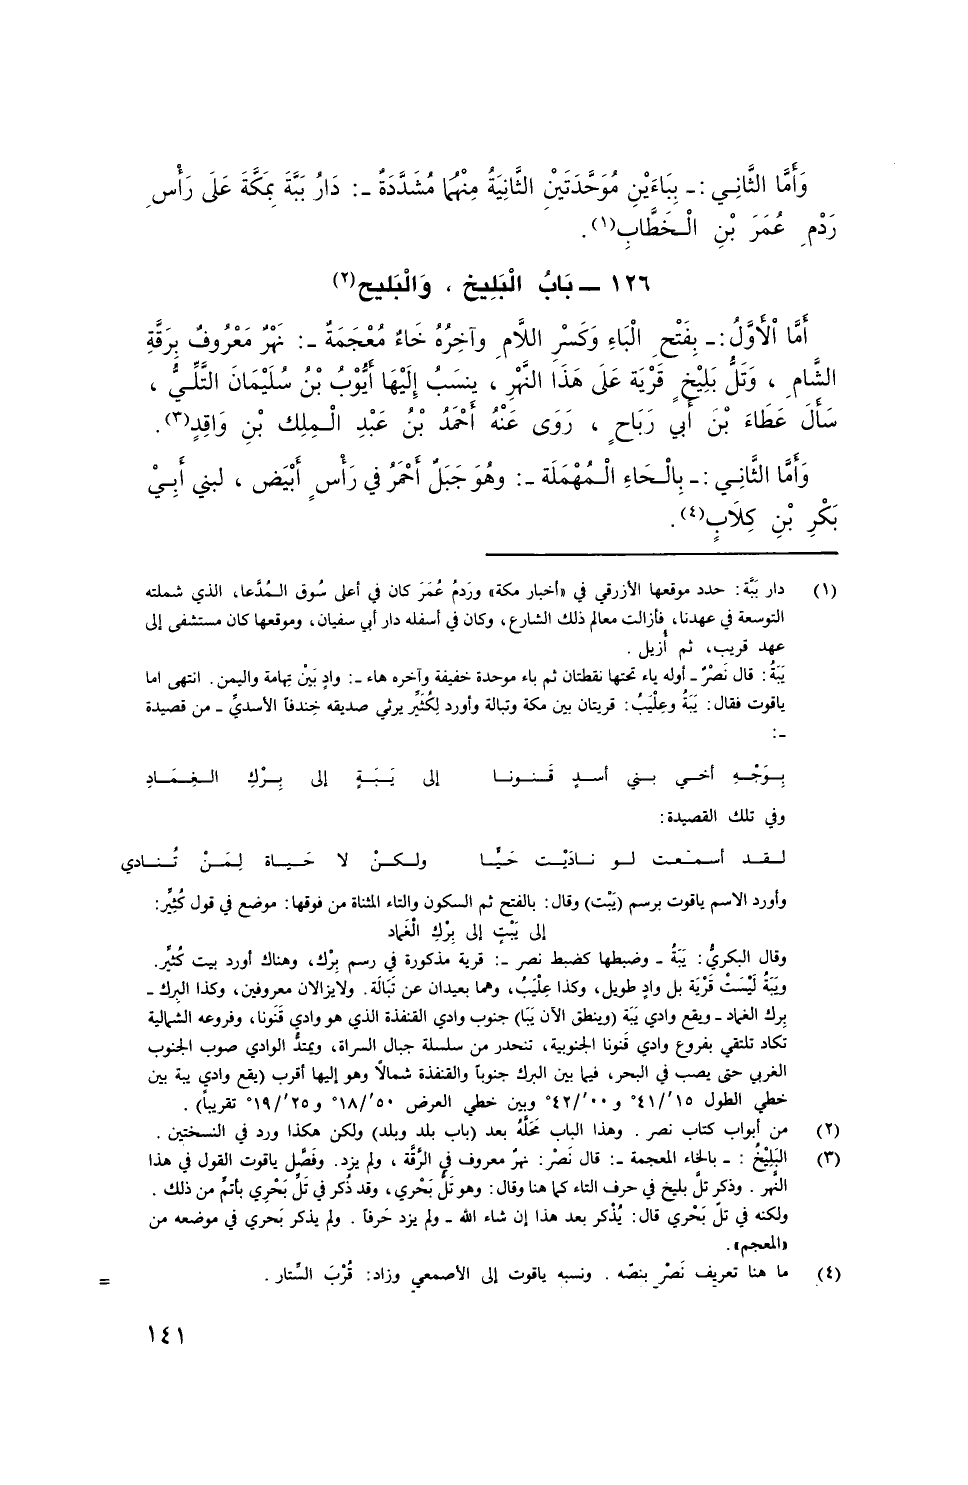 وَأَمَّا الثَّانِي :ـ بِبَاءَيْنِ مُوَحَّدَتَيْنِ الثَّانِيَةُ مِنْهُمَا مُشَدَّدَةٌ ـ: دَارُ بَبَّةَ بِمَكَّةَ عَلَى رَأْسِ
رَدْمِ عُمَرَ بْنِ الْخَطَّابِ(١).
١٢٦ ـ بَابُ الْبَلِيخِ ، وَالْبَلِيح(٢)
أَمَّا الْأَوَّلُ :ـ بِفَتْحِ الْبَاءِ وَكَسْرِ اللَّامِ وآخِرُهُ خَاءٌ مُعْجَمَةٌ ـ: نَهْرٌ مَعْرُوفٌ بِرَقَّةِ
الشَّامِ ، وَتَلُّ بَلِيْخٍ قَرْيَة عَلَى هَذَا النَّهْرِ ، ينسَبُ إِلَيْهَا أَيُّوْبُ بْنُ سُلَيْمَانَ التَّلِّيُّ ،
سَأَلَ عَطَاءَ بْنَ أَبي رَبَاحٍ ، رَوَى عَنْهُ أَحْمَدُ بْنُ عَبْدِ الْمِلِك بْنِ وَاقِدٍ(٣).
وَأَمَّا الثَّانِي :ـ بِالْحَاءِ الْمُهْمَلَة ـ: وهُوَ جَبَلٌ أَحْمَرُ في رَأْسٍ أَبْيَض ، لبني أَبِيْ
بَكْرِ بْنِ كِلَابٍ(٤).
(١) دار بَبَّة: حدد موقعها الأزرقي في «أخبار مكة» ورَدمُ عُمَرَ كان في أعلى سُوق الـمُدَّعا، الذي شملته
التوسعة في عهدنا، فأزالت معالم ذلك الشارع، وكان في أسفله دار أبي سفيان، وموقعها كان مستشفى إلى
عهد قريب، ثم أُزيل .
يَبَةُ: قال نَصْرٌ ـ أوله ياء تحتها نقطتان ثم باء موحدة خفيفة وآخره هاء ـ: وادٍ بَيْنَ تهامة واليمن. انتهى اما
ياقوت فقال: يَبَةُ وعِلْيَبُ: قريتان بين مكة وتبالة وأورد لِكُثَيِّر يرثي صديقه خِندفاً الأسديِّ ـ من قصيدة
ـ:
بِوَجْهِ أخي بني أسدٍ قَنونا إلى يَبَةٍ إلى بِرْكِ الغِمَادِ
وفي تلك القصيدة:
لقد أسمَعت لو نادَيْت حَيًّا ولكنْ لا حَياة لِمَنْ تُنادي
وأورد الاسم ياقوت برسم (يَبْت) وقال: بالفتح ثم السكون والتاء المثناة من فوقها: موضع في قول كُثَيِّر:
إلى يَبْتٍ إلى بِرْكِ الْغِمَاد
وقال البكريُّ: يَبَةُ ـ وضبطها كضبط نصر ـ: قرية مذكورة في رسم بِرْك، وهناك أورد بيت كُثَيِّر.
ويَبَةُ لَيْسَتْ قَرْيَة بل وادٍ طويل، وكذا عِلْيَبُ، وهما بعيدان عن تَبَالَة. ولايزالان معروفين، وكذا البرك ـ
بِرك الغماد ـ ويقع وادي يَبَة (وينطق الآن يَبَا) جنوب وادي القنفذة الذي هو وادي قَنونا، وفروعه الشمالية
تكاد تلتقي بفروع وادي قنونا الجنوبية، تنحدر من سلسلة جبال السراة، ويمتدُّ الوادي صوب الجنوب
الغربي حتى يصب في البحر، فيما بين البرك جنوباً والقنفذة شمالاً وهو إليها أقرب (يقع وادي يبة بين
خطي الطول ١٥/َ٤١° و ٠٠/َ٤٢° وبين خطي العرض ٥٠/َ١٨° و ٢٥/َ١٩° تقريباً) .
(٢) من أبواب كتاب نصر . وهذا الباب مَحَلَّهُ بعد (باب بلد وبلد) ولكن هكذا ورد في النسختين .
(٣) البَلِيْخُ : ـ بالخاء المعجمة ـ: قال نَصْر: نهرٌ معروف في الرَّقَّة ، ولم يزد. وفَصَّل ياقوت القول في هذا
النَّهر . وذكر تلَّ بليخ في حرف التاء كما هنا وقال: وهو تَلُّ بَحْري، وقد ذُكر في تَلِّ بَحْرِي بأتمِّ من ذلك .
ولكنه في تلِّ بَحْري قال: يُذْكر بعد هذا إن شاء الله ـ ولم يزد حَرفاً . ولم يذكر بَحري في موضعه من
«المعجم».
(٤) ما هنا تعريف نَصْرٍ بنصّه . ونسبه ياقوت إلى الأصمعي وزاد: قُرْبَ السِّتار .
=
١٤١